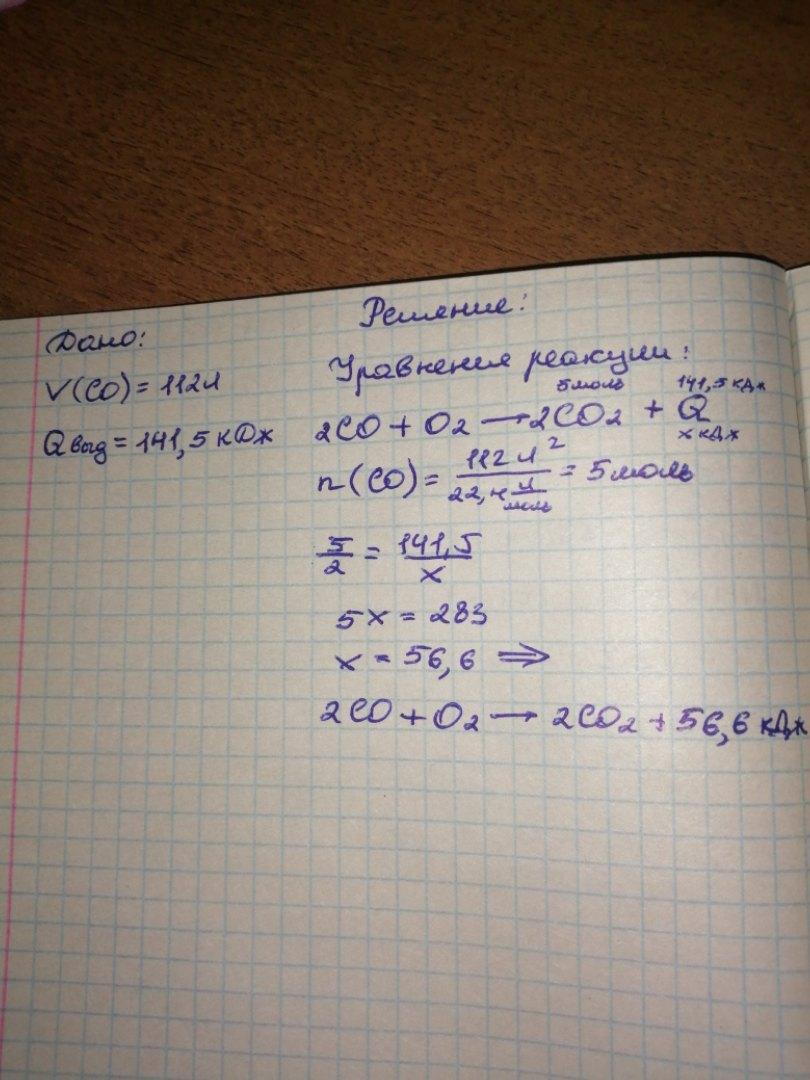 Дано:
V(CO) = 112л
Qвыд = 141,5 кДж
Решение:
Уравнения реакции:
5моль 141,5 кДж
2CO + O₂ → 2CO₂ + Q
2 x кДж
n(CO) = 112л / 22,4 л/моль = 5 моль
5/2 = 141,5/x
5x = 283
x = 56,6 ⇒
2CO + O₂ → 2CO₂ + 56,6 кДж